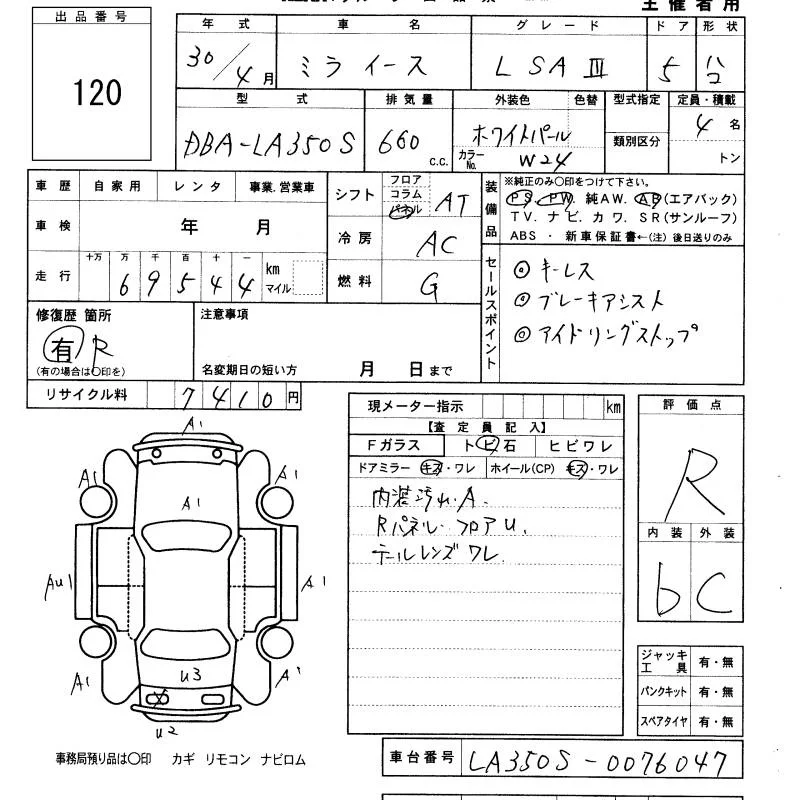 主催者用
出品番号
120
年式 車名 グレード ドア 形状
30/4月 ミライース L SAⅢ 5 ハコ
型式 排気量 外装色 色替 型式指定 定員・積載
DBA-LA350S 660 c.c. ホワイトパール カラーNo. W24 類別区分 4名 トン
車歴 自家用 レンタ 事業.営業車
車検 年 月
走行 十万 万 千 百 十 一
69544 km マイル
シフト フロア コラム パネル AT
冷房 AC
燃料 G
装備品 ※純正のみ〇印をつけて下さい。
PS. PW. 純AW. AB(エアバック)
TV. ナビ. カワ. SR(サンルーフ)
ABS ・ 新車保証書←(注) 後日送りのみ
セールスポイント
◎ キーレス
◎ ブレーキアシスト
◎ アイドリングストップ
修復歴 箇所
有 R
(有の場合は〇印を)
注意事項
名変期日の短い方 月 日まで
リサイクル料 7410円
現メーター指示 km
【査定員記入】
Fガラス トビ石 ヒビワレ
ドアミラー キズ・ワレ ホイール(CP) キズ・ワレ
内装汚れ.A.
Rパネル.フロアU.
テールレンズワレ
評価点
R
内装 外装
b C
ジャッキ工具 有・無
パンクキット 有・無
スペアタイヤ 有・無
A1
A1 A1
A1
AU1 A1
U3
A1 A1
U2
事務局預り品は〇印 カギ リモコン ナビロム
車台番号 LA350S-0076047